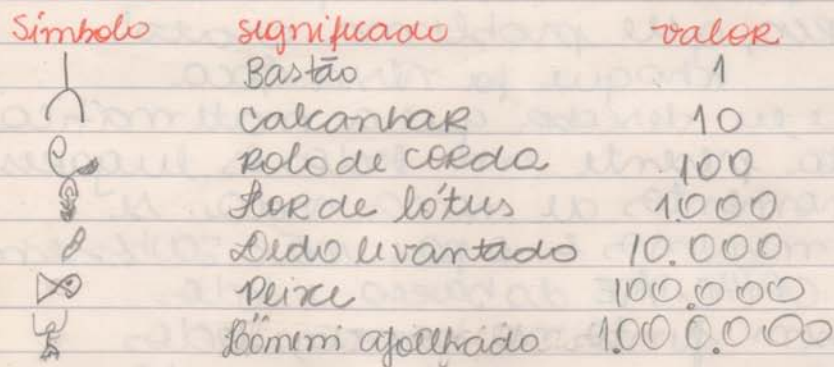 Símbolo significado valor
Bastão 1
calcanhar 10
Rolo de corda 100
Flor de lótus 1.000
Dedo levantado 10.000
Peixe 100.000
ajoelhado 1.000.000